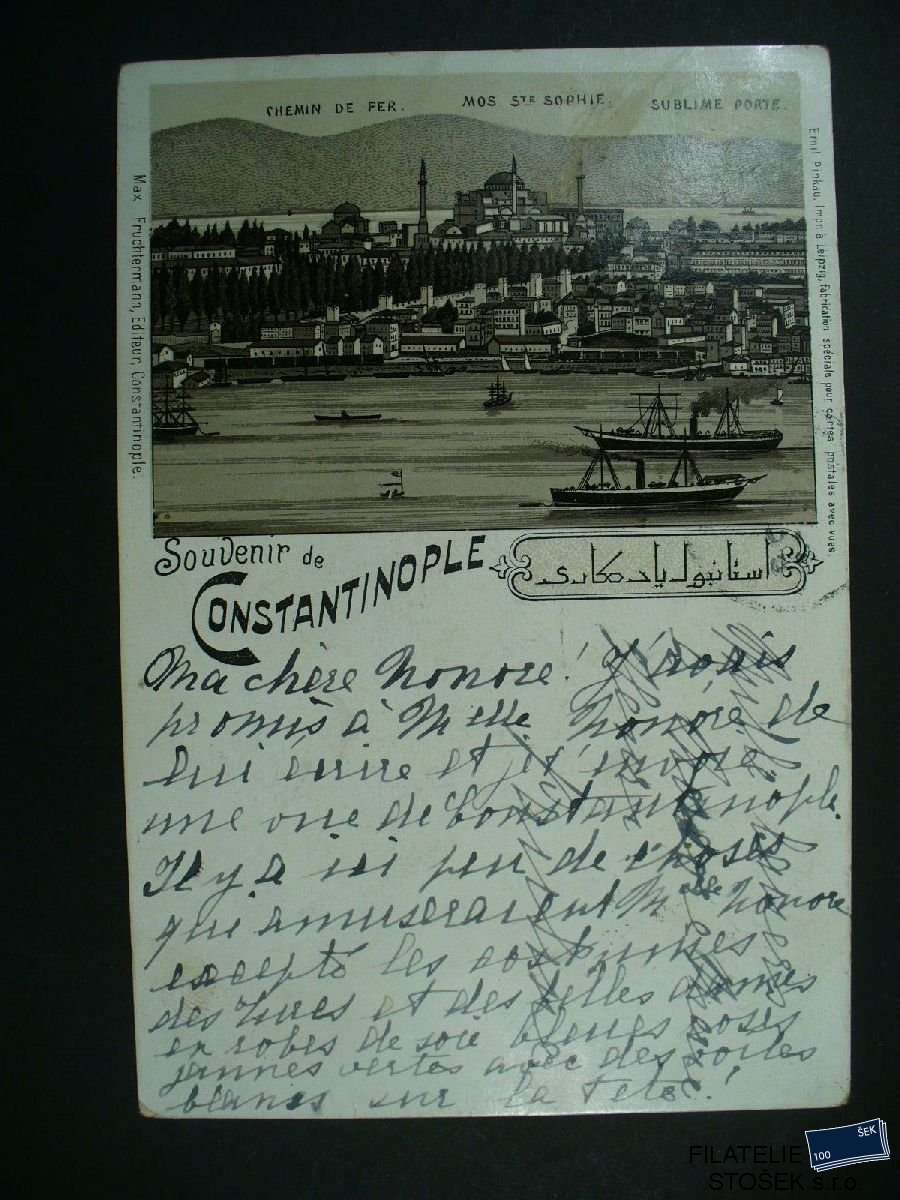 CHEMIN DE FER.
MOS STE SOPHIE.
SUBLIME PORTE.
Max Fruchtermann, Editeur, Constantinople.
Emil Pinkau, Impr. à Leipzig, fabrication spéciale pour cartes postales avec vues.
Souvenir de
CONSTANTINOPLE
استانبول يادكارى
Ma chère Nonore! J'avais
promis à Melle Nonore de
lui écrire et j'envoie
une vue de Constantinople
Il y a ici peu de choses
qui amuseraient Melle Nonore
excepté les costumes
des Turcs et des belles dames
en robes de soie bleues roses
jaunes vertes avec des voiles
blancs sur la tête!
FILATELIE
STOŠEK s.r.o.
100 ŠEK